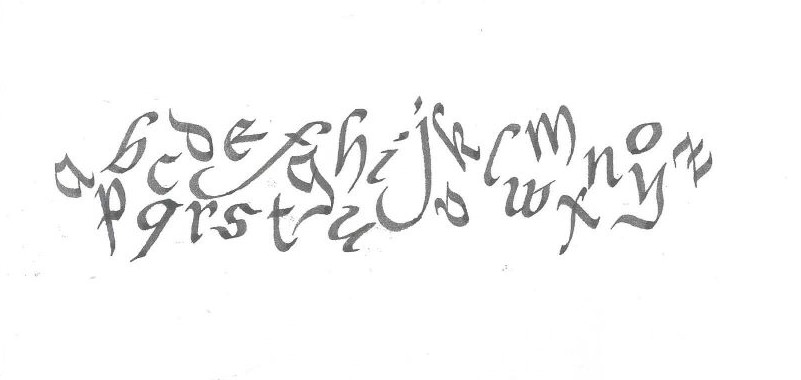 a b c d e f g h i j k l m n o
p q r s t u v w x y z